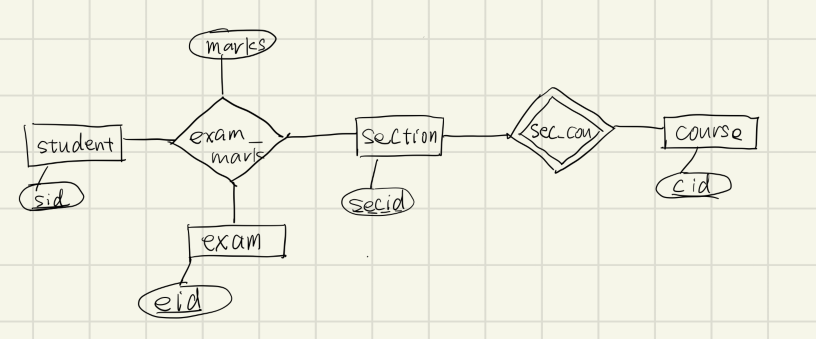 marks
student
exam_
mark
section
sec_cou
course
sid
secid
cid
exam
eid